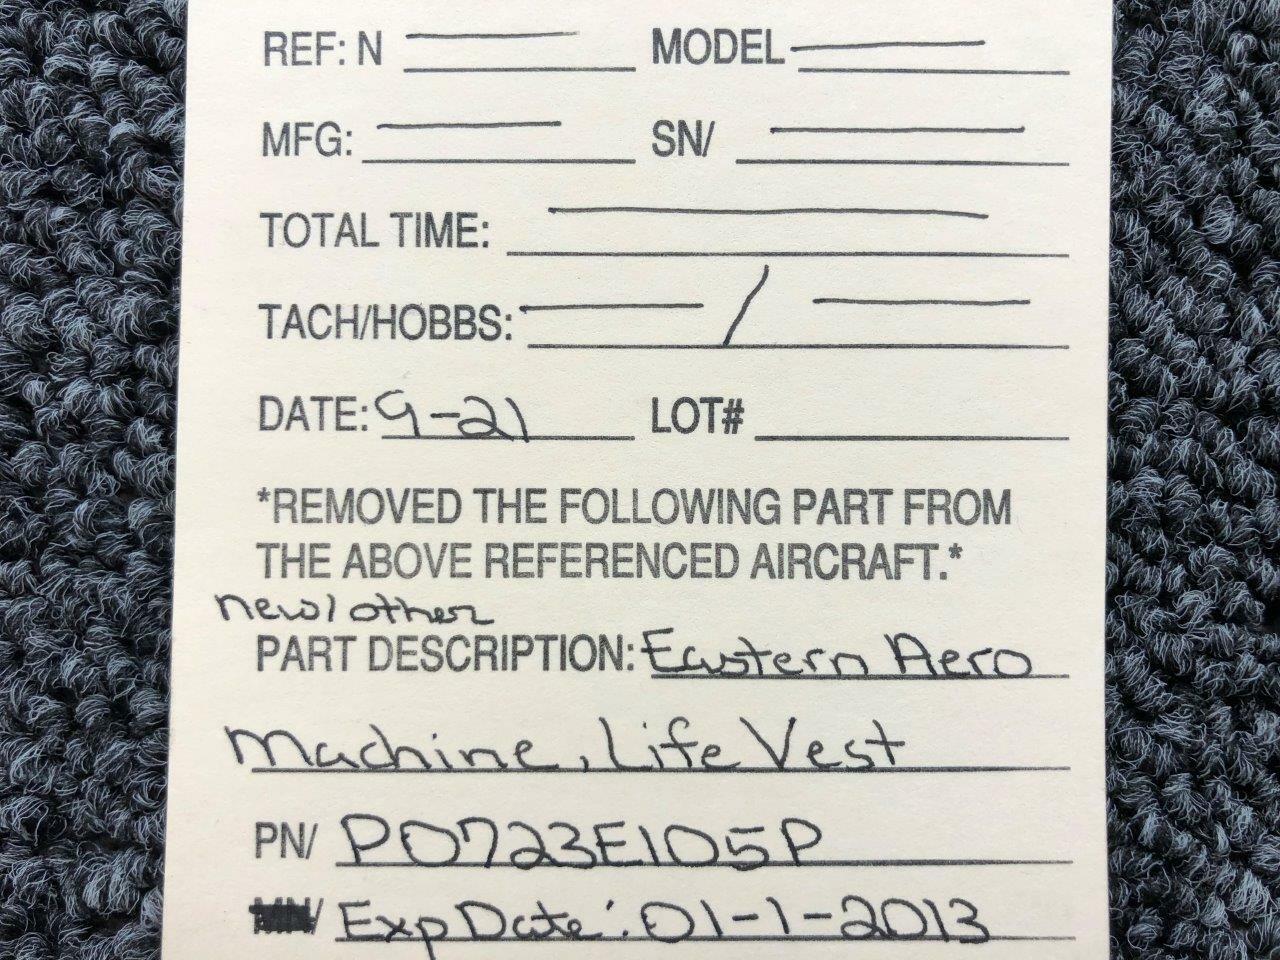 REF: N MODEL
MFG: SN/
TOTAL TIME:
TACH/HOBBS: /
DATE: 9-21 LOT#
*REMOVED THE FOLLOWING PART FROM
THE ABOVE REFERENCED AIRCRAFT.*
new/other
PART DESCRIPTION: Eastern Aero
Machine, Life Vest
PN/ P0723E105P
/ Exp Date: 01-1-2013